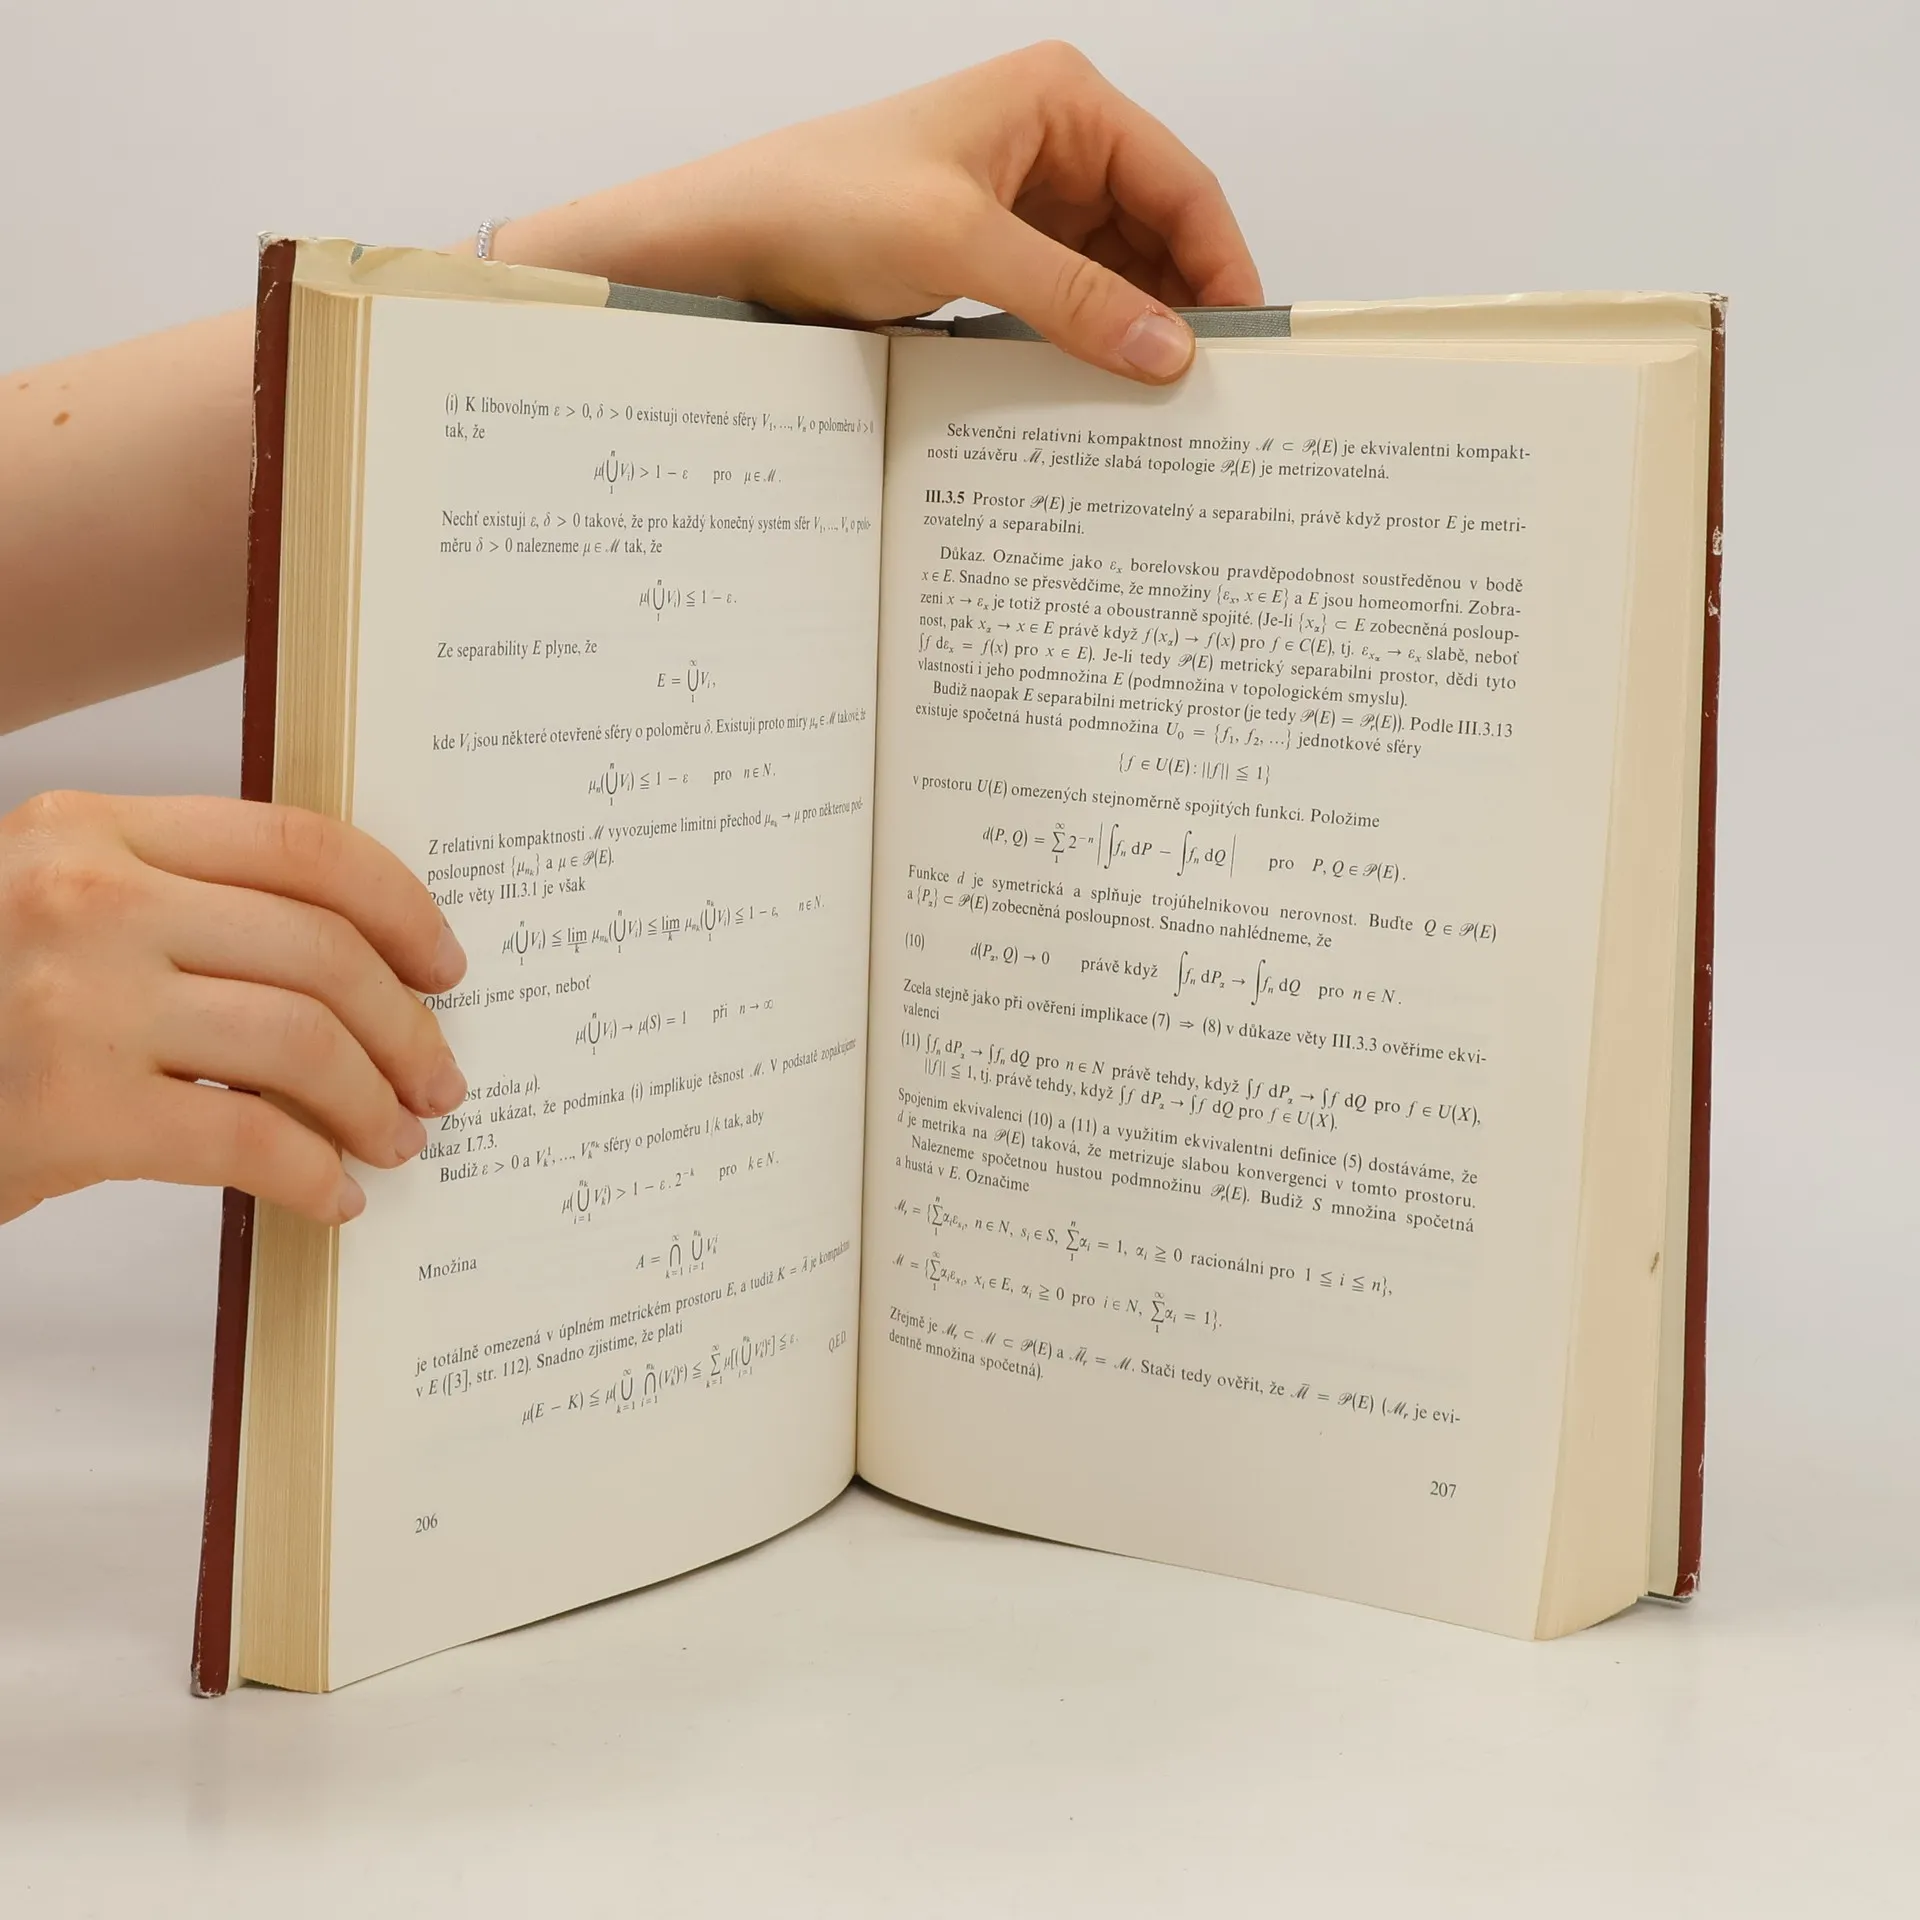 (i) K libovolným ε > 0, δ > 0 existují otevřené sféry V₁, ..., Vₙ o poloměru δ > 0
tak, že
μ(⋃₁ⁿ Vᵢ) > 1 − ε pro μ ∈ ℳ.
Nechť existují ε, δ > 0 takové, že pro každý konečný systém sfér V₁, ..., Vₙ o polo-
měru δ > 0 nalezneme μ ∈ ℳ tak, že
μ(⋃₁ⁿ Vᵢ) ≦ 1 − ε.
Ze separability E plyne, že
E = ⋃₁^∞ Vᵢ,
kde Vᵢ jsou některé otevřené sféry o poloměru δ. Existují proto míry μₙ ∈ ℳ takové, že
μₙ(⋃₁ⁿ Vᵢ) ≦ 1 − ε pro n ∈ N.
Z relativní kompaktnosti ℳ vyvozujeme limitní přechod μ_{n_k} → μ pro některou pod-
posloupnost {μ_{n_k}} a μ ∈ 𝒫(E).
Podle věty III.3.1 je však
μ(⋃₁ⁿ Vᵢ) ≦ lim_k μ_{n_k}(⋃₁ⁿ Vᵢ) ≦ lim_k μ_{n_k}(⋃₁^{n_k} Vᵢ) ≦ 1 − ε, n ∈ N.
Obdrželi jsme spor, neboť
μ(⋃₁ⁿ Vᵢ) → μ(S) = 1 při n → ∞
ost zdola μ).
Zbývá ukázat, že podmínka (i) implikuje těsnost ℳ. V podstatě zopakujeme
důkaz I.7.3.
Budiž ε > 0 a V_k¹, ..., V_k^{n_k} sféry o poloměru 1/k tak, aby
μ(⋃_{i=1}^{n_k} V_kⁱ) > 1 − ε . 2^{−k} pro k ∈ N.
Množina A = ⋂_{k=1}^∞ ⋃_{i=1}^{n_k} V_kⁱ
je totálně omezená v úplném metrickém prostoru E, a tudíž K = Ā je kompaktní
v E ([3], str. 112). Snadno zjistíme, že platí
μ(E − K) ≦ μ(⋃_{k=1}^∞ ⋂_{i=1}^{n_k} (V_kⁱ)ᶜ) ≦ ∑_{k=1}^∞ μ[(⋃_{i=1}^{n_k} V_kⁱ)ᶜ] ≦ ε. QED
206
Sekvenční relativní kompaktnost množiny ℳ ⊂ 𝒫ᵣ(E) je ekvivalentní kompakt-
nosti uzávěru ℳ̄, jestliže slabá topologie 𝒫ᵣ(E) je metrizovatelná.
III.3.5 Prostor 𝒫(E) je metrizovatelný a separabilní, právě když prostor E je metri-
zovatelný a separabilní.
Důkaz. Označíme jako εₓ borelovskou pravděpodobnost soustředěnou v bodě
x ∈ E. Snadno se přesvědčíme, že množiny {εₓ, x ∈ E} a E jsou homeomorfní. Zobra-
zení x → εₓ je totiž prosté a oboustranně spojité. (Je-li {x_α} ⊂ E zobecněná posloup-
nost, pak x_α → x ∈ E právě když f(x_α) → f(x) pro f ∈ C(E), tj. ε_{x_α} → εₓ slabě, neboť
∫f dεₓ = f(x) pro x ∈ E). Je-li tedy 𝒫(E) metrický separabilní prostor, dědí tyto
vlastnosti i jeho podmnožina E (podmnožina v topologickém smyslu).
Budiž naopak E separabilní metrický prostor (je tedy 𝒫(E) = 𝒫ᵣ(E)). Podle III.3.13
existuje spočetná hustá podmnožina U₀ = {f₁, f₂, ...} jednotkové sféry
{f ∈ U(E) : ||f|| ≦ 1}
v prostoru U(E) omezených stejnoměrně spojitých funkcí. Položíme
d(P, Q) = ∑₁^∞ 2⁻ⁿ |∫fₙ dP − ∫fₙ dQ| pro P, Q ∈ 𝒫(E).
Funkce d je symetrická a splňuje trojúhelníkovou nerovnost. Buďte Q ∈ 𝒫(E)
a {P_α} ⊂ 𝒫(E) zobecněná posloupnost. Snadno nahlédneme, že
(10) d(P_α, Q) → 0 právě když ∫fₙ dP_α → ∫fₙ dQ pro n ∈ N.
Zcela stejně jako při ověření implikace (7) ⇒ (8) v důkaze věty III.3.3 ověříme ekvi-
valenci
(11) ∫fₙ dP_α → ∫fₙ dQ pro n ∈ N právě tehdy, když ∫f dP_α → ∫f dQ pro f ∈ U(X),
||f|| ≦ 1, tj. právě tehdy, když ∫f dP_α → ∫f dQ pro f ∈ U(X).
Spojením ekvivalencí (10) a (11) a využitím ekvivalentní definice (5) dostáváme, že
d je metrika na 𝒫(E) taková, že metrizuje slabou konvergenci v tomto prostoru.
Nalezneme spočetnou hustou podmnožinu 𝒫ᵣ(E). Budiž S množina spočetná
a hustá v E. Označíme
ℳᵣ = {∑₁ⁿ αᵢε_{sᵢ}, n ∈ N, sᵢ ∈ S, ∑₁ⁿ αᵢ = 1, αᵢ ≧ 0 racionální pro 1 ≦ i ≦ n},
ℳ = {∑₁^∞ αᵢε_{xᵢ}, xᵢ ∈ E, αᵢ ≧ 0 pro i ∈ N, ∑₁^∞ αᵢ = 1}.
Zřejmě je ℳᵣ ⊂ ℳ ⊂ 𝒫(E) a ℳ̄ᵣ = ℳ. Stačí tedy ověřit, že ℳ̄ = 𝒫(E) (ℳᵣ je evi-
dentně množina spočetná).
207